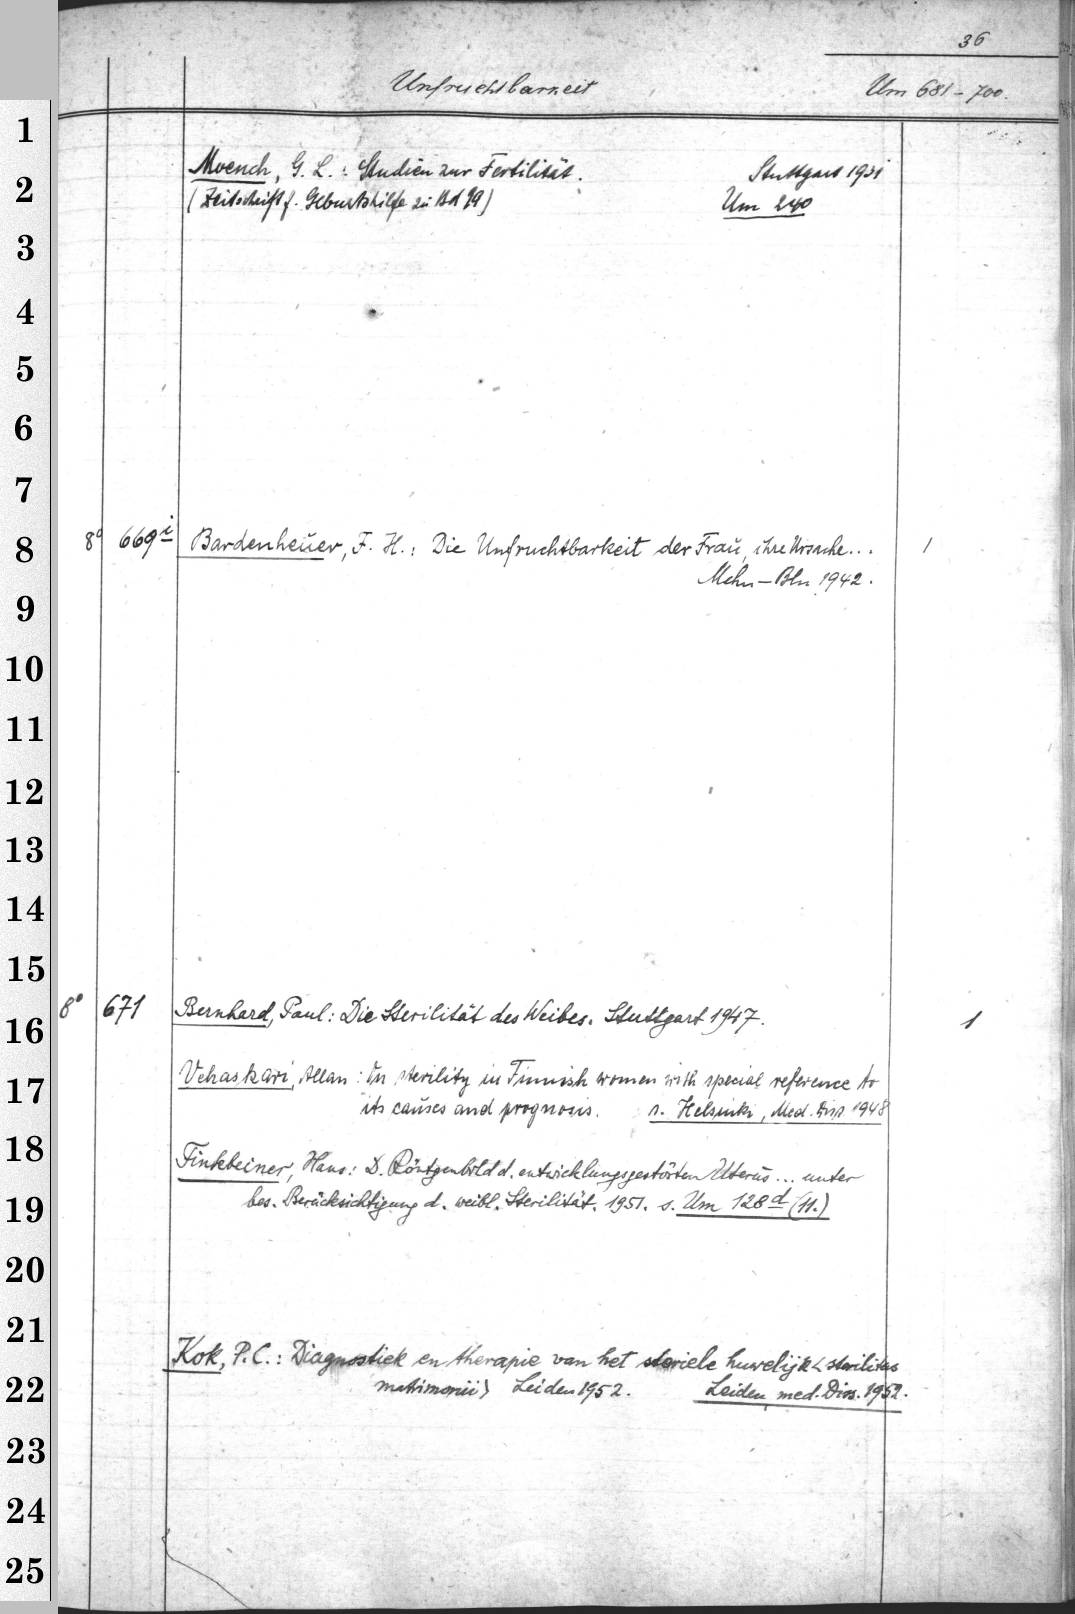 36
Unfruchtbarkeit Um 681-700.
1
Moench, G. L.: Studien zur Fertilität. Stuttgart 1931
2
(Zeitschrift f. Geburtshilfe zu Bd 99) Um 240
3
4
5
6
7
8 8° 669 i Bardenheuer, F. H.: Die Unfruchtbarkeit der Frau, ihre Ursache... 1
Mchn-Bln 1942.
9
10
11
12
13
14
15
16 8° 671 Bernhard, Paul: Die Sterilität des Weibes. Stuttgart 1947. 1
17 Vehaskari, Allan: On sterility in Finnish women with special reference to
its causes and prognosis. s. Helsinki, Med. Diss 1948
18 Finkbeiner, Hans: D. Röntgenbild d. entwicklungsgestörten Uterus... unter
19 bes. Berücksichtigung d. weibl. Sterilität. 1951. s. Um 128 d (11.)
20
21
Kok, P.C.: Diagnostiek en therapie van het steriele huwelijk < sterilitas
22 matrimonii > Leiden 1952. Leiden, med. Diss. 1952.
23
24
25